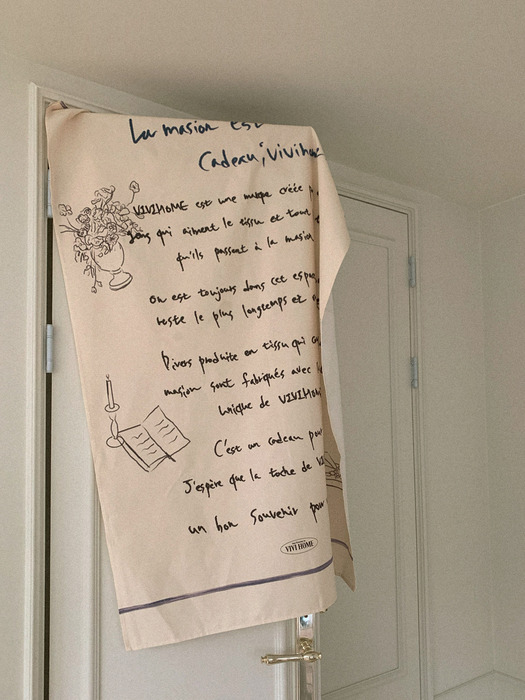 La masion est
Cadeau; vivihome
VIVIHOME est une marque créée p
gens qui aiment le tissu et tout
qu'ils passent à la masion
on est toujours dans cet espa
reste le plus longtemps et
Divers produite en tissu qui
masion sont fabriqués avec l
unique de VIVIHOM
C'est un cadeau pour
J'espère que la tache de VI
un bon Souvenir pour
VIVI HOME